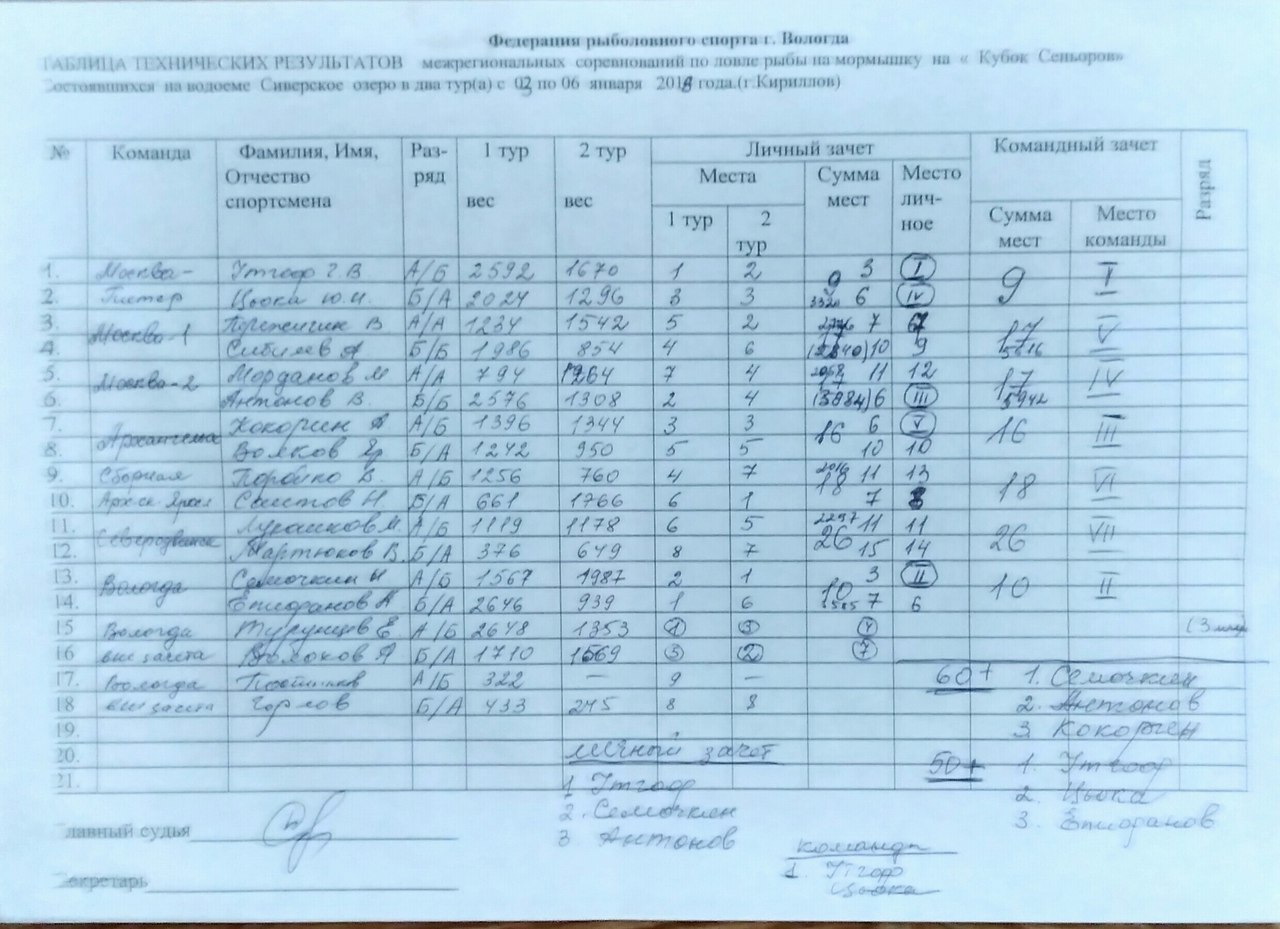 Федерация рыболовного спорта г. Вологда
ТАБЛИЦА ТЕХНИЧЕСКИХ РЕЗУЛЬТАТОВ межрегиональных соревнований по ловле рыбы на мормышку на « Кубок Сеньоров»
Состоявшихся на водоеме Сиверское озеро в два тур(а) с 03 по 06 января 2018 года.(г.Кириллов)
№ Команда Фамилия, Имя, Отчество спортсмена Раз-ряд 1 тур вес 2 тур вес Личный зачет Командный зачет Разряд
Места Сумма мест Место лич-ное
1 тур 2 тур Сумма мест Место команды
1. Москва- Утгоф Г.В. А/Б 2592 1670 1 2 3 I 9 I
2. Питер Цьока Ю.И. Б/А 2024 1296 3 3 6 IV
3. Москва-1 В А/А 1234 1542 5 2 7 17 V
4. Сибилев А Б/Б 1986 854 4 6 (2840) 10 9
5. Москва-2 Морданов М А/А 794 1264 7 4 11 12 17 IV
6. Антонов В. Б/Б 2576 1308 2 4 (3884) 6 III 5942
7. Архангельск Кокорин А А/Б 1396 1344 3 3 16 6 V 16 III
8. Волков Б/А 1242 950 5 5 10 10
9. Сборная А/Б 1256 760 4 7 18 11 13 18 VI
10. Арх-ск. Яросл Саитов Н Б/А 661 1766 6 1 7 8
11. Северодвинск Лурашков М. А/Б 1119 1178 6 5 2297 11 11 26 VII
12. Мартюков В. Б/А 376 649 8 7 26 15 14
13. Вологда Семочкин Н А/Б 1567 1987 2 1 3 II 10 II
14. Епифанов А Б/А 2646 939 1 6 10 3585 7 6
15 Вологда Турунцев Е. А/Б 2648 1353 1 3 4
16 вне зачета Волоков А Б/А 1710 1569 3 2 7
17. Вологда А/Б 322 – 9 – 60+ 1. Семочкин
18 вне зачета Горлов Б/А 433 245 8 8 2. Антонов
19. 3. Кокорин
20. личный зачет 50+ 1. Утгоф
21. 1 Утгоф 2. Цьока
2. Семочкин 3. Епифанов
Главный судья
3 Антонов команды
1. Утгоф
Цьока
Секретарь